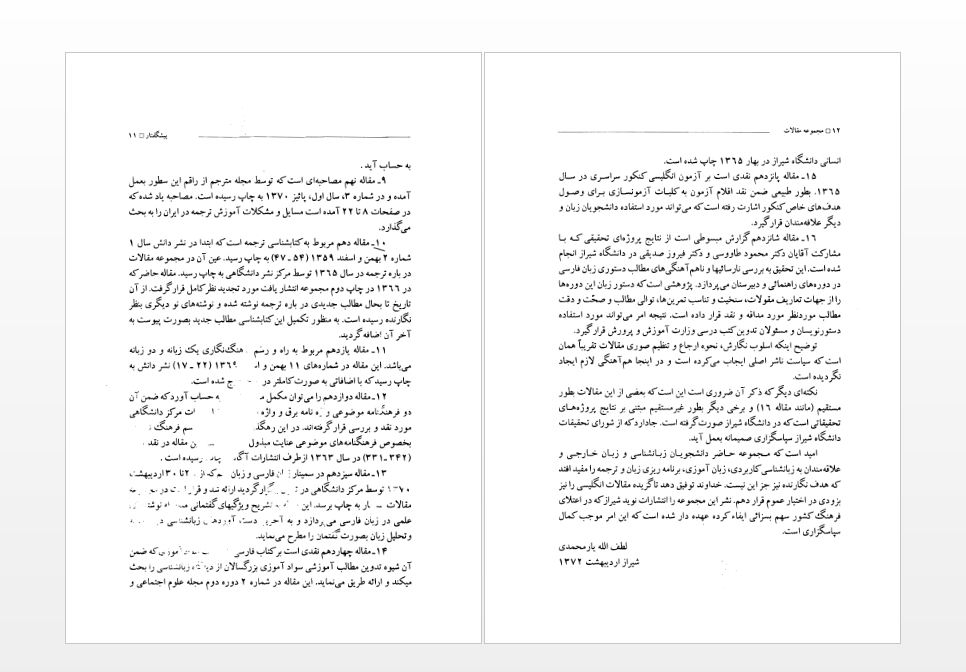 پیشگفتار □ ۱۱
به حساب آید.
۹ـ مقاله نهم مصاحبه‌ای است که توسط مجله مترجم از راقم این سطور بعمل
آمده و در شماره ۳، سال اول، پائیز ۱۳۷۰ به چاپ رسیده است. مصاحبه یاد شده که
در صفحات ۸ تا ۲۲ آمده است مسایل و مشکلات آموزش ترجمه در ایران را به بحث
می‌گذارد.
۱۰ـ مقاله دهم مربوط به کتابشناسی ترجمه است که ابتدا در نشر دانش سال ۱
شماره ۲ بهمن و اسفند ۱۳۵۹ (۵۴ ـ ۴۷) به چاپ رسید. عین آن در مجموعه مقالات
در باره ترجمه در سال ۱۳۶۵ توسط مرکز نشر دانشگاهی به چاپ رسید. مقاله حاضر که
در ۱۳۶۶ در چاپ دوم مجموعه انتشار یافت مورد تجدید نظر کامل قرار گرفت. از آن
تاریخ تا بحال مطالب جدیدی در باره ترجمه نوشته شده و نوشته‌های نو دیگری بنظر
نگارنده رسیده است. به منظور تکمیل این کتابشناسی مطالب جدید بصورت پیوست به
آخر آن اضافه گردید.
۱۱ـ مقاله یازدهم مربوط به راه و رسم هنگ‌نگاری یک زبانه و دو زبانه
می‌باشد. این مقاله در شماره‌های ۱۱ بهمن و ۱۳۶۹ (۲۲ ـ ۱۷) نشر دانش به
چاپ رسید که با اضافاتی به صورت کاملتر در ج شده است.
۱۲ـ مقاله دوازدهم را می‌توان مکمل به حساب آورد که ضمن آن
دو فرهنگنامه موضوعی واژه نامه برق و واژه ات مرکز دانشگاهی
مورد نقد و بررسی قرار گرفته‌اند. در این رهگذ سم فرهنگ
بخصوص فرهنگنامه‌های موضوعی عنایت مبذول ین مقاله در نقد
(۳۴۲ـ۳۳۱) در سال ۱۳۶۳ از طرف انتشارات آگاه چاپ رسیده است.
۱۳ـ مقاله سیزدهم در سمینار زبان فارسی و زبان که از ۲ تا ۳۰ اردیبهشت
۱۳۷۰ توسط مرکز دانشگاهی در برگزار گردید ارائه شد و قرار است در
مقالات به چاپ برسد. این تشریح ویژگیهای گفتمانی نوشته
علمی در زبان فارسی می‌پردازد و به آخرین دست آوردهای زبانشناسی در
و تحلیل زبان بصورت گفتمان را مطرح می‌نماید.
۱۴ـ مقاله چهاردهم نقدی است بر کتاب فارسی آموزی که ضمن
آن شیوه تدوین مطالب آموزشی سواد آموزی بزرگسالان از دیدگاه زبانشناسی را بحث
میکند و ارائه طریق می‌نماید. این مقاله در شماره ۲ دوره دوم مجله علوم اجتماعی و
۱۲ □ مجموعه مقالات
انسانی دانشگاه شیراز در بهار ۱۳۶۵ چاپ شده است.
۱۵ـ مقاله پانزدهم نقدی است بر آزمون انگلیسی کنکور سراسری در سال
۱۳۶۵. بطور طبیعی ضمن نقد اقلام آزمون به کلیات آزمونسازی برای وصول
هدف‌های خاص کنکور اشارت رفته است که می‌تواند مورد استفاده دانشجویان زبان و
دیگر علاقه‌مندان قرار گیرد.
۱۶ـ مقاله شانزدهم گزارش مبسوطی است از نتایج پروژه‌ای تحقیقی که با
مشارکت آقایان دکتر محمود طاووسی و دکتر فیروز صدیقی در دانشگاه شیراز انجام
شده است. این تحقیق به بررسی نارسائیها و ناهم‌آهنگی‌های مطالب دستوری زبان فارسی
در دوره‌های راهنمائی و دبیرستان می‌پردازد. پژوهشی است که دستور زبان این دوره‌ها
را از جهات تعاریف مقولات، سنخیت و تناسب تمرین‌ها، توالی مطالب و صحّت و دقت
مطالب موردنظر مورد مداقه و نقد قرار داده است. نتیجه امر می‌تواند مورد استفاده
دستورنویسان و مسئولان تدوین کتب درسی وزارت آموزش و پرورش قرار گیرد.
توضیح اینکه اسلوب نگارش، نحوه ارجاع و تنظیم صوری مقالات تقریباً همان
است که سیاست ناشر اصلی ایجاب می‌کرده است و در اینجا هم‌آهنگی لازم ایجاد
نگردیده است.
نکته‌ای دیگر که ذکر آن ضروری است این است که بعضی از این مقالات بطور
مستقیم (مانند مقاله ۱۶) و برخی دیگر بطور غیرمستقیم مبتنی بر نتایج پروژه‌های
تحقیقاتی است که در دانشگاه شیراز صورت گرفته است. جادارد که از شورای تحقیقات
دانشگاه شیراز سپاسگزاری صمیمانه بعمل آید.
امید است که مجموعه حاضر دانشجویان زبانشناسی و زبان خارجی و
علاقه‌مندان به زبانشناسی کاربردی، زبان آموزی، برنامه ریزی زبان و ترجمه را مفید افتد
که هدف نگارنده نیز جز این نیست. خداوند توفیق دهد تا گزیده مقالات انگلیسی را نیز
بزودی در اختیار عموم قرار دهم. نشر این مجموعه را انتشارات نوید شیراز که در اعتلای
فرهنگ کشور سهم بسزائی ایفاء کرده عهده دار شده است که این امر موجب کمال
سپاسگزاری است.
لطف الله یارمحمدی
شیراز اردیبهشت ۱۳۷۲